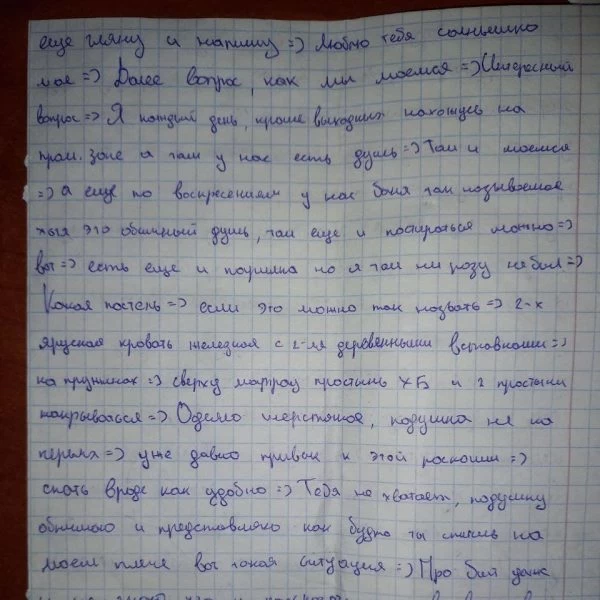 еще гляну и напишу =) Люблю тебя солнышко
мое =) Далее вопрос, как мы моемся =) Интересный
вопрос =) Я каждый день, кроме выходных нахожусь на
пром. зоне и там у нас есть душь =) Там и моемся
=) а еще по воскресениям у нас баня так называемая
хотя это обычный душь, там еще и постираться можно =)
вот =) есть еще и парилка но я там ни разу не был =)
Какая постель =) если это можно так назвать =) 2-х
ярусная кровать железная с 2-мя деревянными вставками =)
на пружинах =) сверху матрац простынь ХБ и 2 простыни
накрываться =) Одеяло шерстяное, подушка не на
перьях =) уже давно привык к этой роскоши =)
спать вроде как удобно =) Тебя не хватает, подушку
обнимаю и представляю как будто ты спишь на
моем плече вот такая ситуация =) Про быт даже